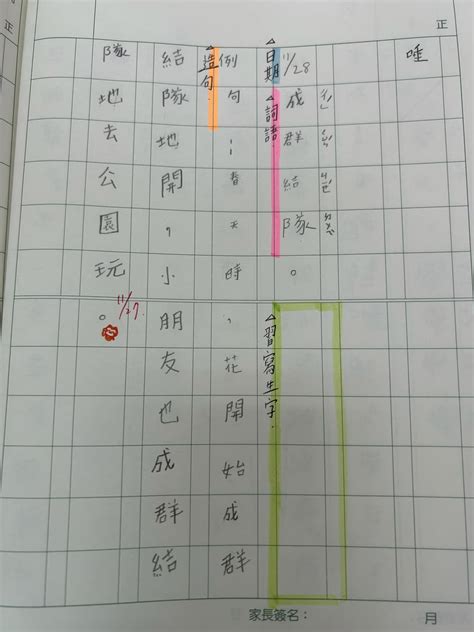 正
唾
11/28
成群結隊。
△日期
△詞語
△習寫生字.
△造句.
例句：春天時，花開始成群
結隊地開，小朋友也成群結
隊地去公園玩。
11/27.
家長簽名：
月
正